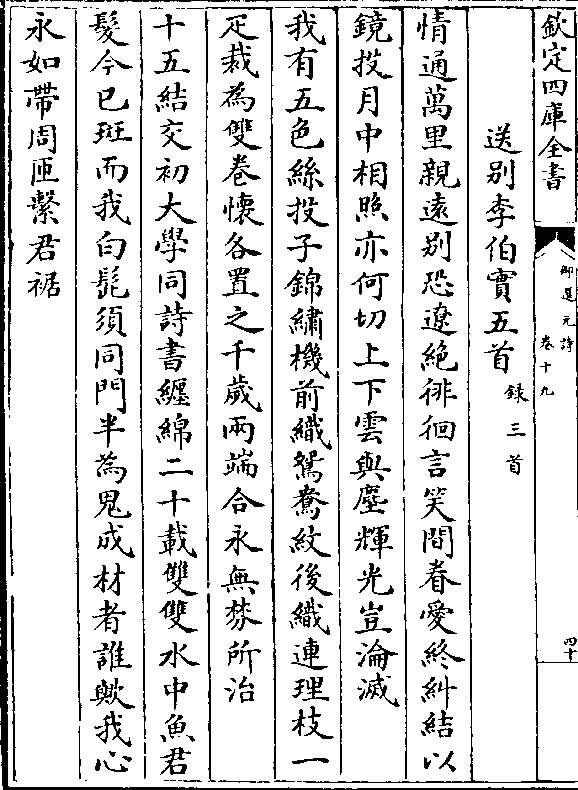 欽定四庫全書
御選元詩
卷十九
四十
送別李伯實五首錄三首
情通萬里親遠別恐遼絶徘徊言笑間眷愛終糾結以
鏡投月中相照亦何切上下雲與塵輝光豈淪滅
我有五色絲投子錦繡機前織鴛鴦紋後織連理枝一
疋裁為雙卷懷各置之千歲兩端合永無棼所治
十五結交初大學同詩書纏綿二十載雙雙水中魚君
髮今已斑而我白髭須同門半為鬼成材者誰歟我心
永如帶周匝繫君裾